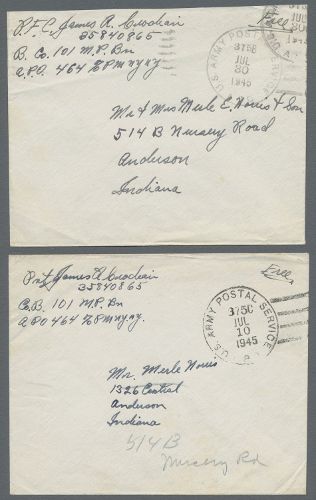 P.F.C. James A. Crodian
35840865
B. Co. 101 M.P. Bn
A.P.O. 464 % P.M. N.Y. N.Y.
Free
U.S. ARMY POSTAL SERVICE
375C
JUL
30
1945
Mr & Mrs Merle E. Norris & Son
514 B Nursery Road
Anderson
Indiana
Pvt James A Crodian
35840865
Co. B. 101 M.P. Bn
APO 464 % P.M. N.Y. N.Y.
Free
U.S. ARMY POSTAL SERVICE
375C
JUL
10
1945
Mr. Merle Norris
1326 Central
Anderson
Indiana
514 B
Nursery Rd